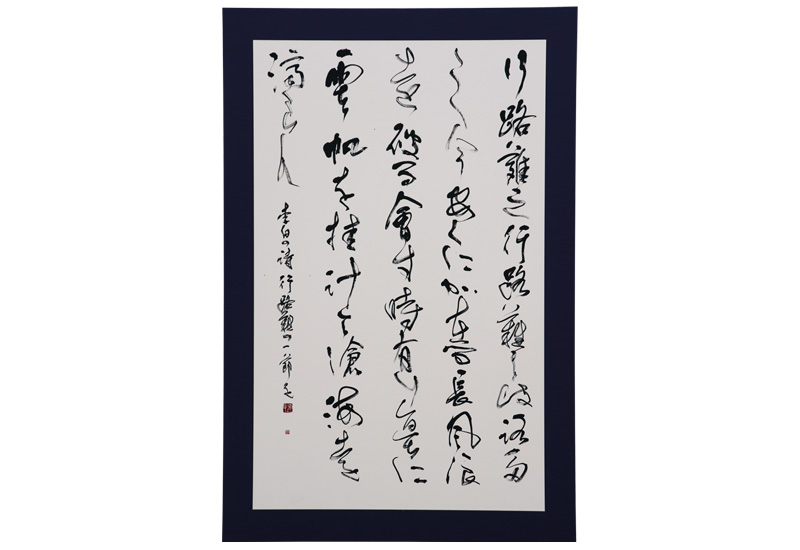 行路難之行路難し岐路多
今安くに可在留長風浪
遠破る會寸時有り直仁
雲帆を挂計て滄海遠
濟らん
李白の詩行路難の一節を